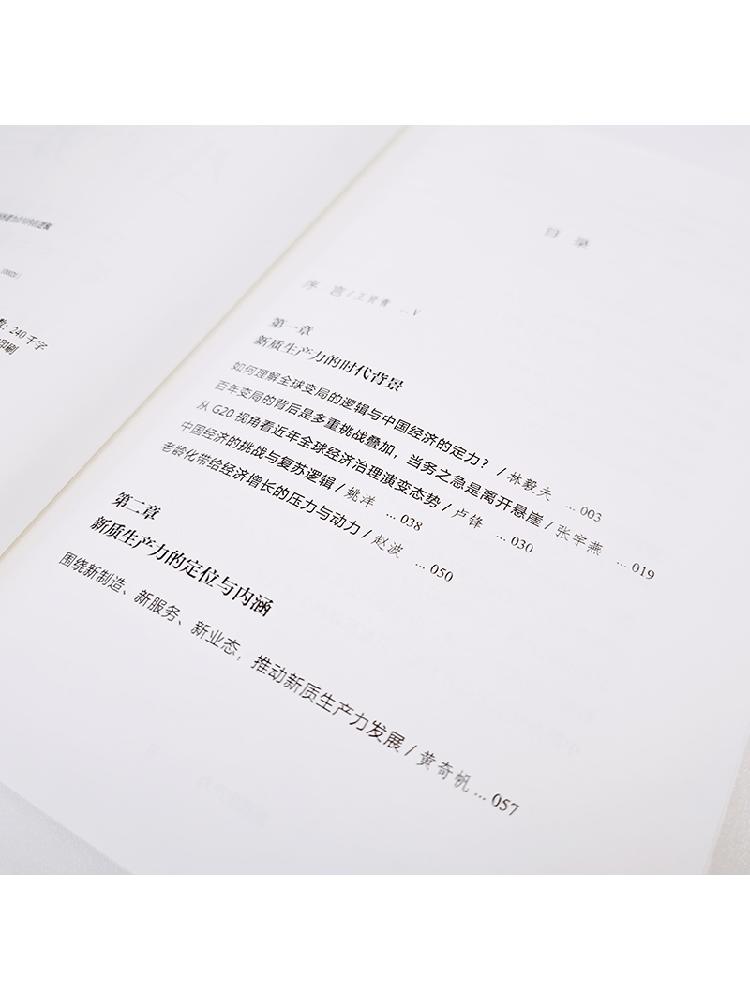 费：240 千字
印刷
目 录
序 言 / 王贤青 …V
第一章
新质生产力的时代背景
如何理解全球变局的逻辑与中国经济的定力？/ 林毅夫 …003
百年变局的背后是多重挑战叠加，当务之急是离开悬崖 / 张宇燕 …019
从 G20 视角看近年全球经济治理演变态势 / 卢锋 …030
中国经济的挑战与复苏逻辑 / 姚洋 …038
老龄化带给经济增长的压力与动力 / 赵波 …050
第二章
新质生产力的定位与内涵
围绕新制造、新服务、新业态，推动新质生产力发展 / 黄奇帆 …057